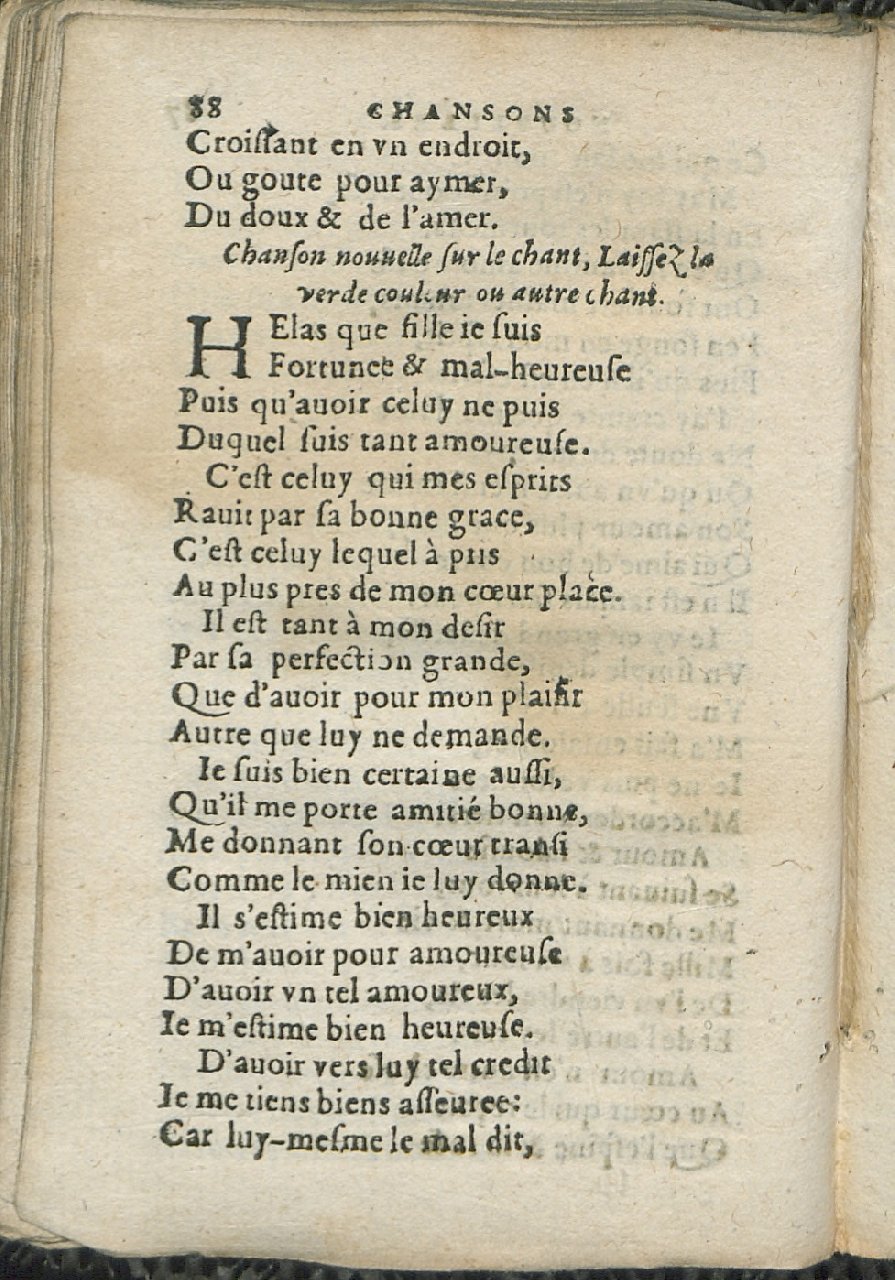 88 CHANSONS
Croiſſant en vn endroit,
Ou goute pour aymer,
Du doux & de l'amer.
Chanſon nouuelle ſur le chant, Laiſſez la
verde couleur ou autre chant.
HElas que fille ie ſuis
Fortunee & mal-heureuſe
Puis qu'auoir celuy ne puis
Duquel ſuis tant amoureuſe.
C'eſt celuy qui mes eſprits
Rauit par ſa bonne grace,
C'eſt celuy lequel à pris
Au plus pres de mon cœur place.
Il eſt tant à mon deſir
Par ſa perfection grande,
Que d'auoir pour mon plaiſir
Autre que luy ne demande.
Ie ſuis bien certaine auſſi,
Qu'il me porte amitié bonne,
Me donnant ſon cœur tranſi
Comme le mien ie luy donne.
Il s'eſtime bien heureux
De m'auoir pour amoureuſe
D'auoir vn tel amoureux,
Ie m'eſtime bien heureuſe.
D'auoir vers luy tel credit
Ie me tiens biens aſſeuree:
Car luy-meſme le mal dit,